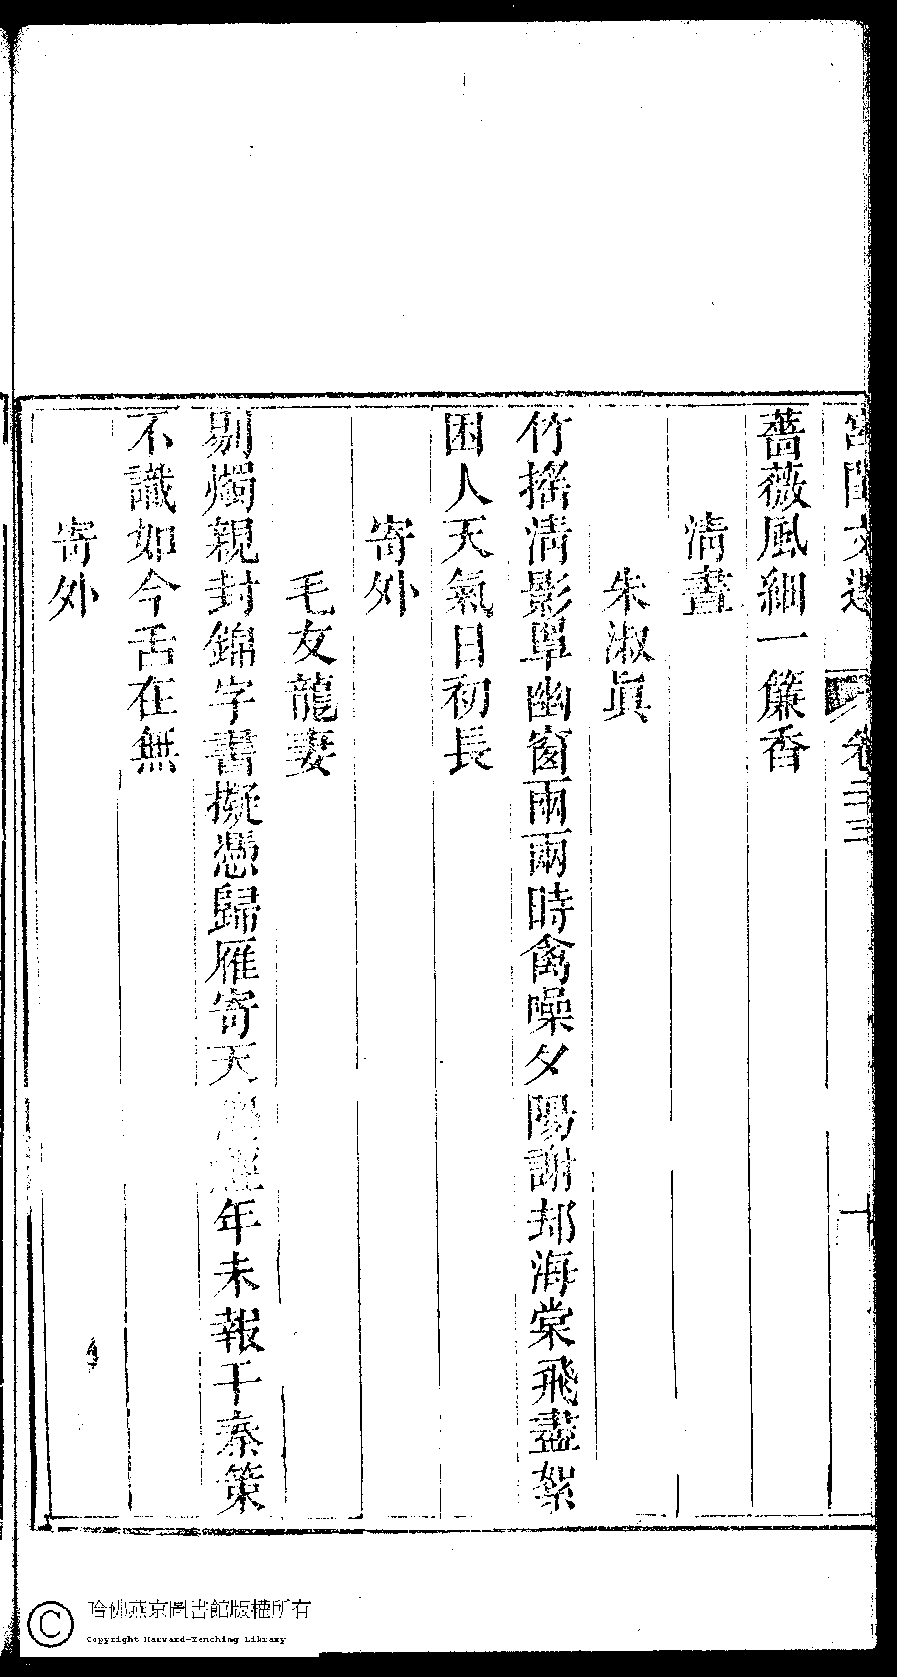 宮閨文選 卷二十三 十
薔薇風細一簾香
清晝
朱淑眞
竹搖清影罩幽窗兩兩時禽噪夕陽謝却海棠飛盡絮
困人天氣日初長
寄外
毛友龍妻
剔燭親封錦字書擬憑歸雁寄天隅經年未報干秦策
不識如今舌在無
寄外
哈佛燕京圖書館版權所有
Copyright Harvard-Yenching Library